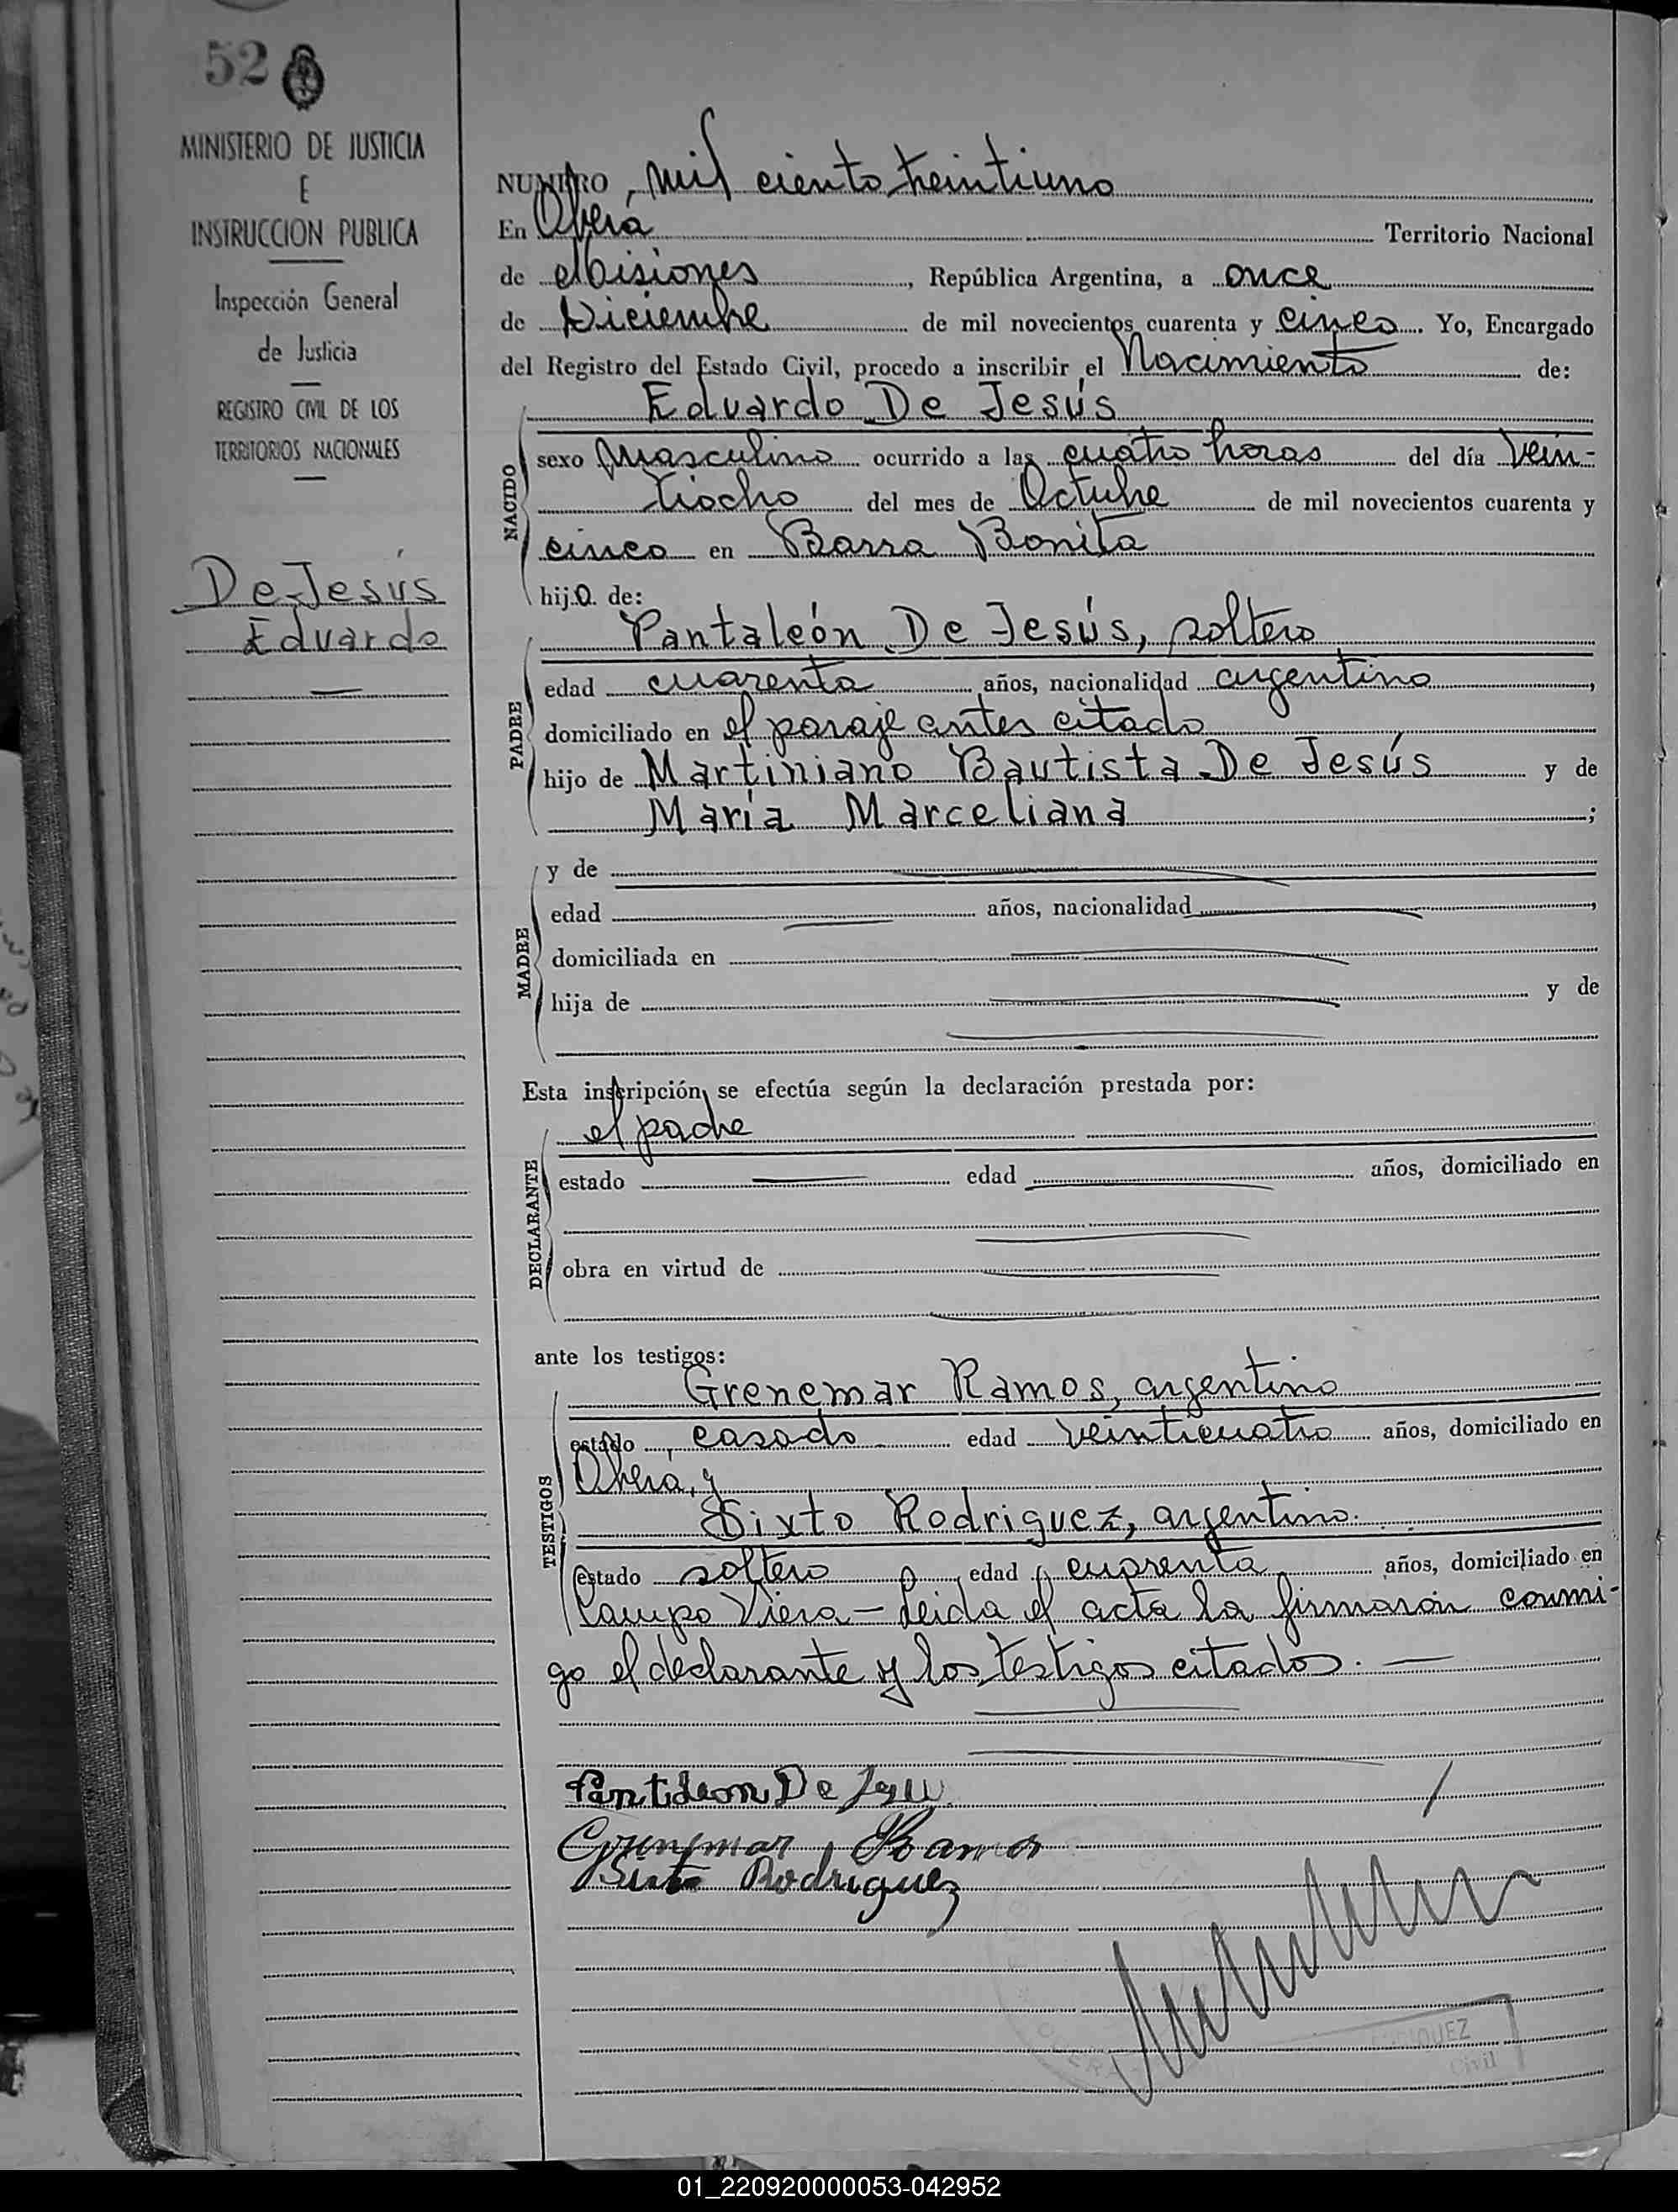 52
MINISTERIO DE JUSTICIA
E
INSTRUCCION PUBLICA
Inspección General
de Justicia
REGISTRO CIVIL DE LOS
TERRITORIOS NACIONALES
De Jesús
Eduardo
NUMERO, mil ciento treintiuno
En Oberá Territorio Nacional
de Misiones, República Argentina, a once
de Diciembre de mil novecientos cuarenta y cinco. Yo, Encargado
del Registro del Estado Civil, procedo a inscribir el Nacimiento de:
Eduardo De Jesús
NACIDO
sexo masculino ocurrido a las cuatro horas del día vein-
tiocho del mes de Octubre de mil novecientos cuarenta y
cinco en Barra Bonita
hijo de:
PADRE
Pantaleón De Jesús, soltero
edad cuarenta años, nacionalidad argentino,
domiciliado en el paraje antes citado
hijo de Martiniano Bautista De Jesús y de
María Marceliana;
MADRE
y de
edad años, nacionalidad,
domiciliada en
hija de y de
Esta inscripción se efectúa según la declaración prestada por:
DECLARANTE
el padre
estado edad años, domiciliado en
obra en virtud de
ante los testigos:
TESTIGOS
Grenemar Ramos, argentino
estado, casado edad veinticuatro años, domiciliado en
Oberá, y
Sixto Rodriguez, argentino.
estado soltero edad cuarenta años, domiciliado en
Campo Viera - Leida el acta la firmaron conmi-
go el declarante y los testigos citados.
Pantaleon De Jesu
Grenemar Ramos
Sixto Rodriguez
QUEZ
Civil
01_220920000053-042952